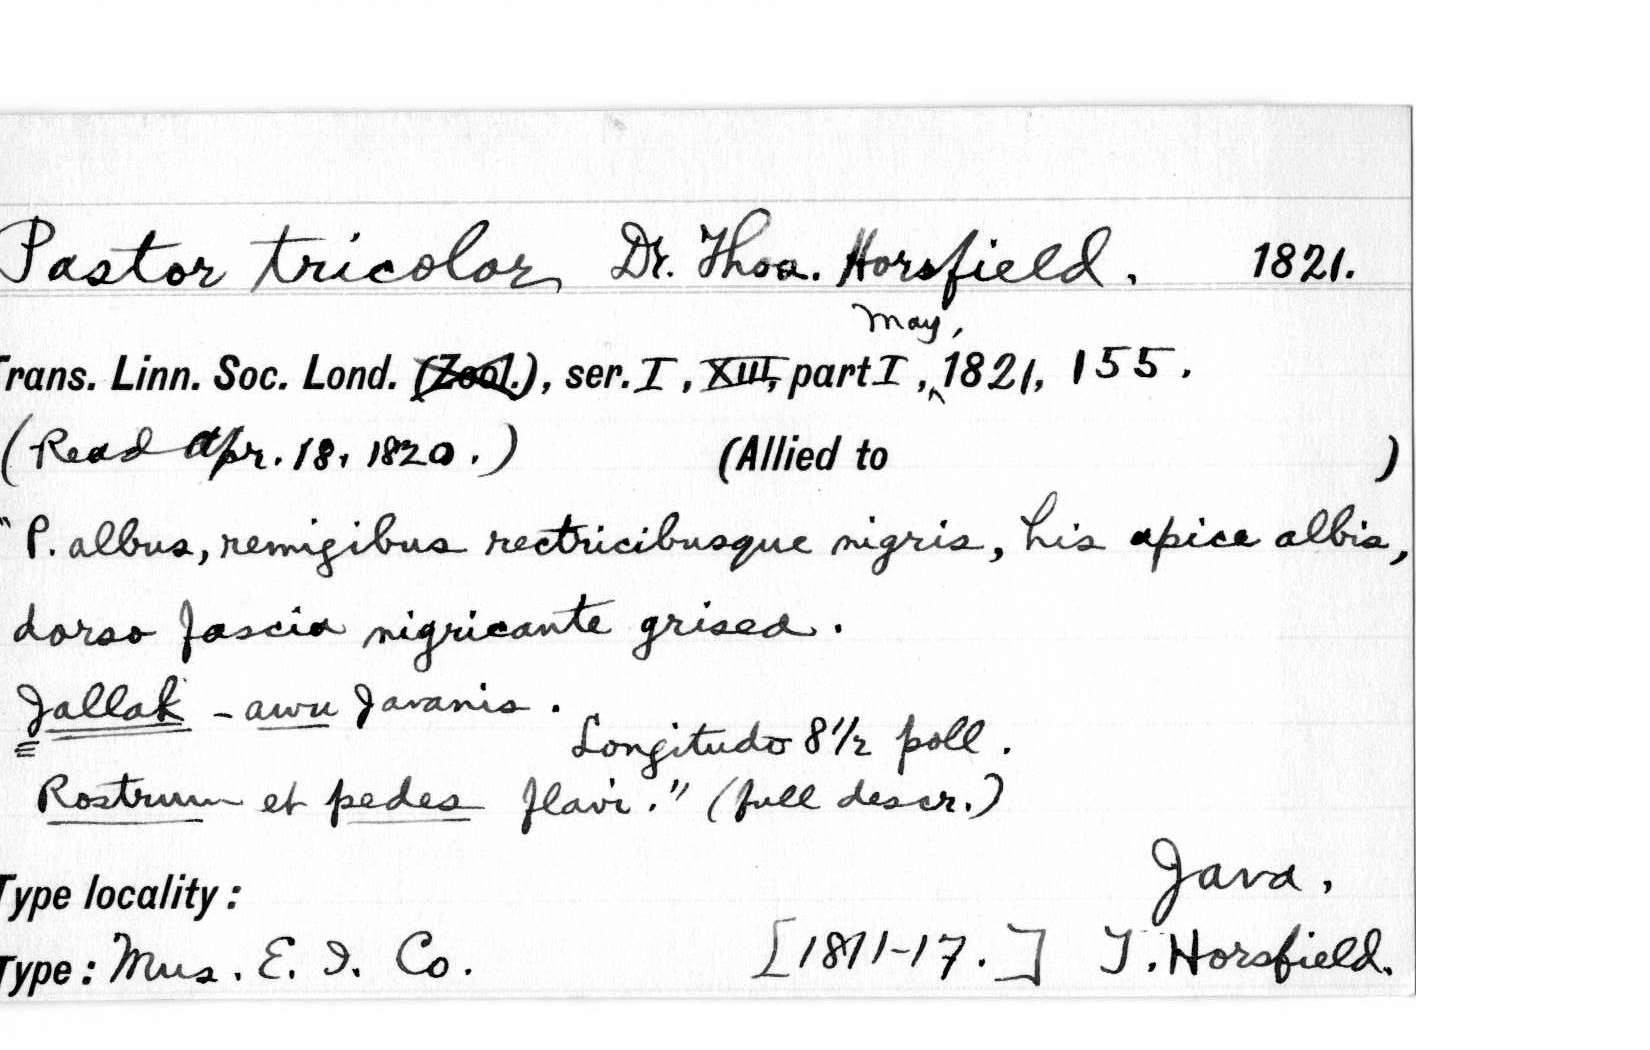 Pastor tricolor, Dr. Thos. Horsfield. 1821.
May,
Trans. Linn. Soc. Lond. (Zool.), ser. I, XIII, part I, ^ 1821, 155.
(Read Apr. 18, 1820.) (Allied to )
"P. albus, remigibus rectricibusque nigris, his apice albis,
dorso fascia nigricante grisea.
Jallak - awu Javanis.
Longitudo 8 1/2 poll.
Rostrum et pedes flavi." (full descr.)
Java,
Type locality:
Type: Mus. E. I. Co. [1811-17.] T. Horsfield.